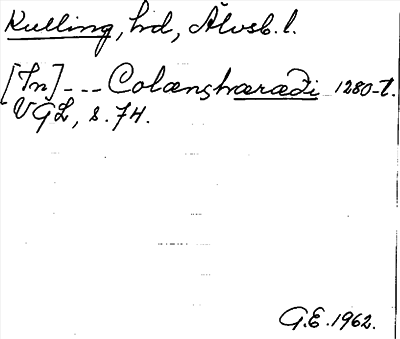 Kulling, hd, Älvsb. l.
[In] --- Colænghæræði 1280-t.
VGL, s. 74.
G.E. 1962.